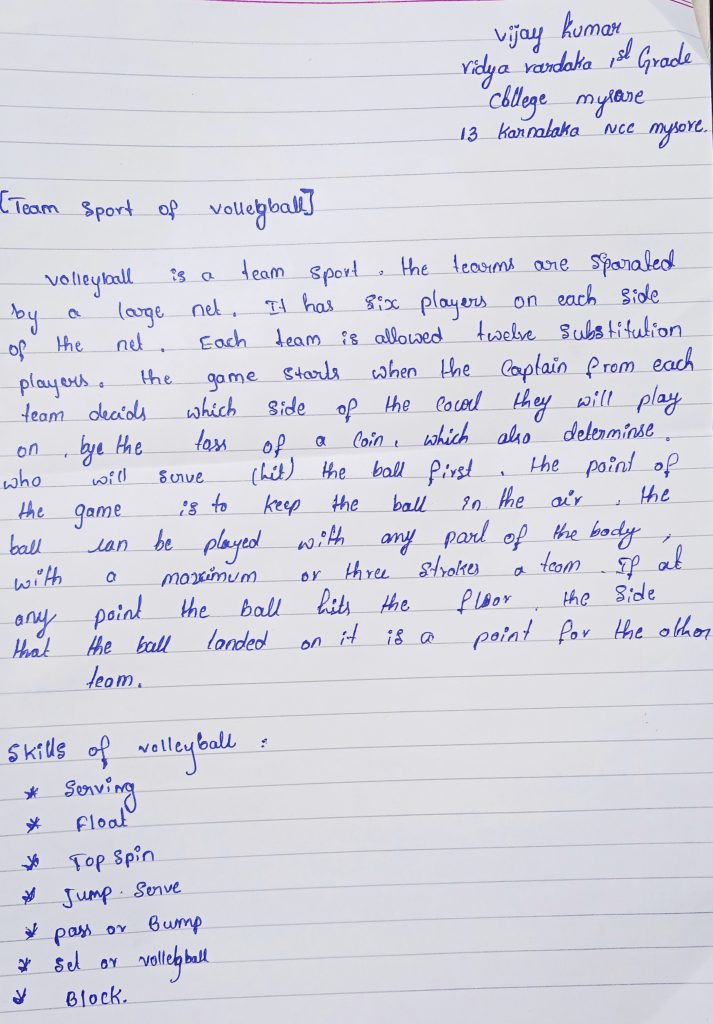 Vijay Kumar
vidya vardaka 1st Grade
College mysore
13 Karnataka NCC mysore.
[Team Sport of volleyball]
volleyball is a team sport. the teams are sparated
by a large net. It has six players on each side
of the net. Each team is allowed twelve substitution
players. the game starts when the Captain from each
team decids which side of the they will play
on, bye the toss of a Coin, which also determinse.
who will serve (hit) the ball first. the point of
the game is to keep the ball in the air. the
ball can be played with any part of the body,
with a maximum or three strokes a team. If at
any point the ball hits the floor, the side
that the ball landed on it is a point for the other
team.
Skills of volleyball :
* Serving
* Float
* Top Spin
* Jump. Serve
* pass or Bump
* Set or volleyball
* Block.